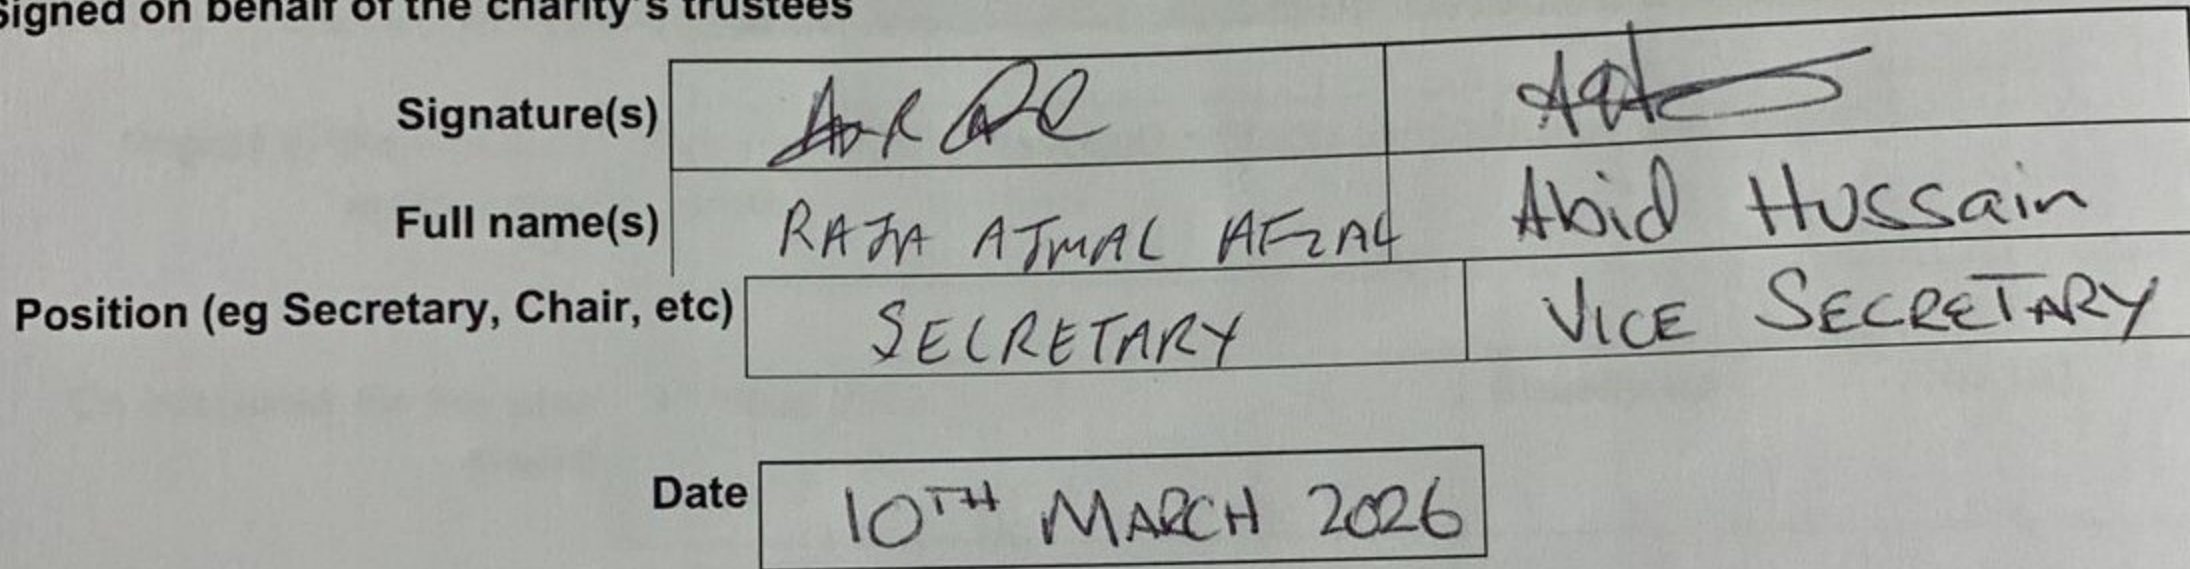 Signed on behalf of the charity's trustees
Signature(s)
Full name(s) RAJA AJMAL AFZAL Abid Hussain
Position (eg Secretary, Chair, etc) SECRETARY VICE SECRETARY
Date 10TH MARCH 2026